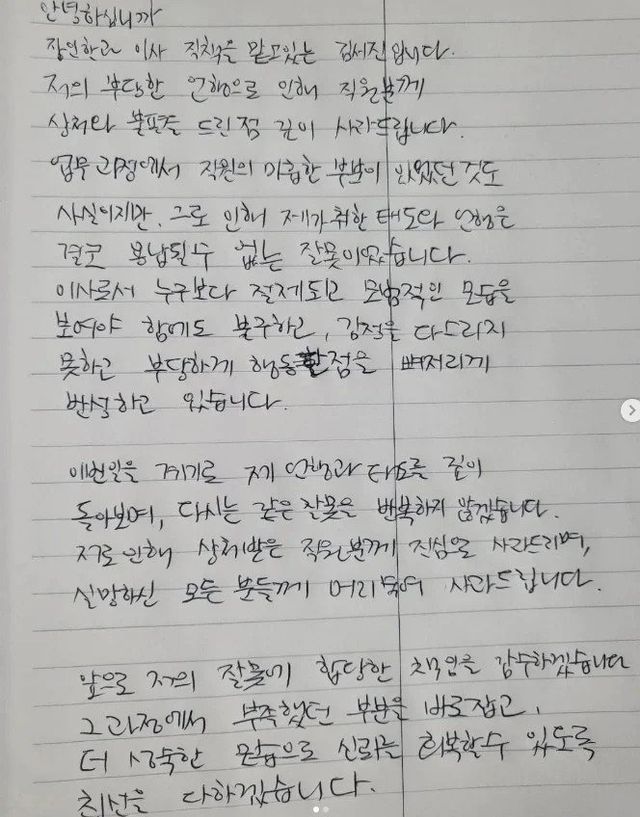 안녕하십니까
장인한과 이사 직책을 맡고있는 김서진입니다.
저의 부당한 언행으로 인해 직원분께
상처와 불쾌를 드린점 깊이 사과드립니다.
업무 과정에서 직원의 미흡한 부분이 있었던 것도
사실이지만, 그로 인해 제가 취한 태도와 언행은
결코 용납될수 없는 잘못이었습니다.
이사로서 누구보다 절제되고 모범적인 모습을
보여야 함에도 불구하고, 감정을 다스리지
못하고 부당하게 행동한점을 뼈저리게
반성하고 있습니다.
이번일을 계기로 제 언행과 태도를 깊이
돌아보며, 다시는 같은 잘못을 반복하지 않겠습니다.
저로 인해 상처받은 직원분께 진심으로 사과드리며,
실망하신 모든 분들께 머리숙여 사과드립니다.
앞으로 저의 잘못에 합당한 책임을 감수하겠습니다
그 과정에서 부족했던 부분을 바로잡고,
더 성숙한 모습으로 신뢰를 회복할수 있도록
최선을 다하겠습니다.